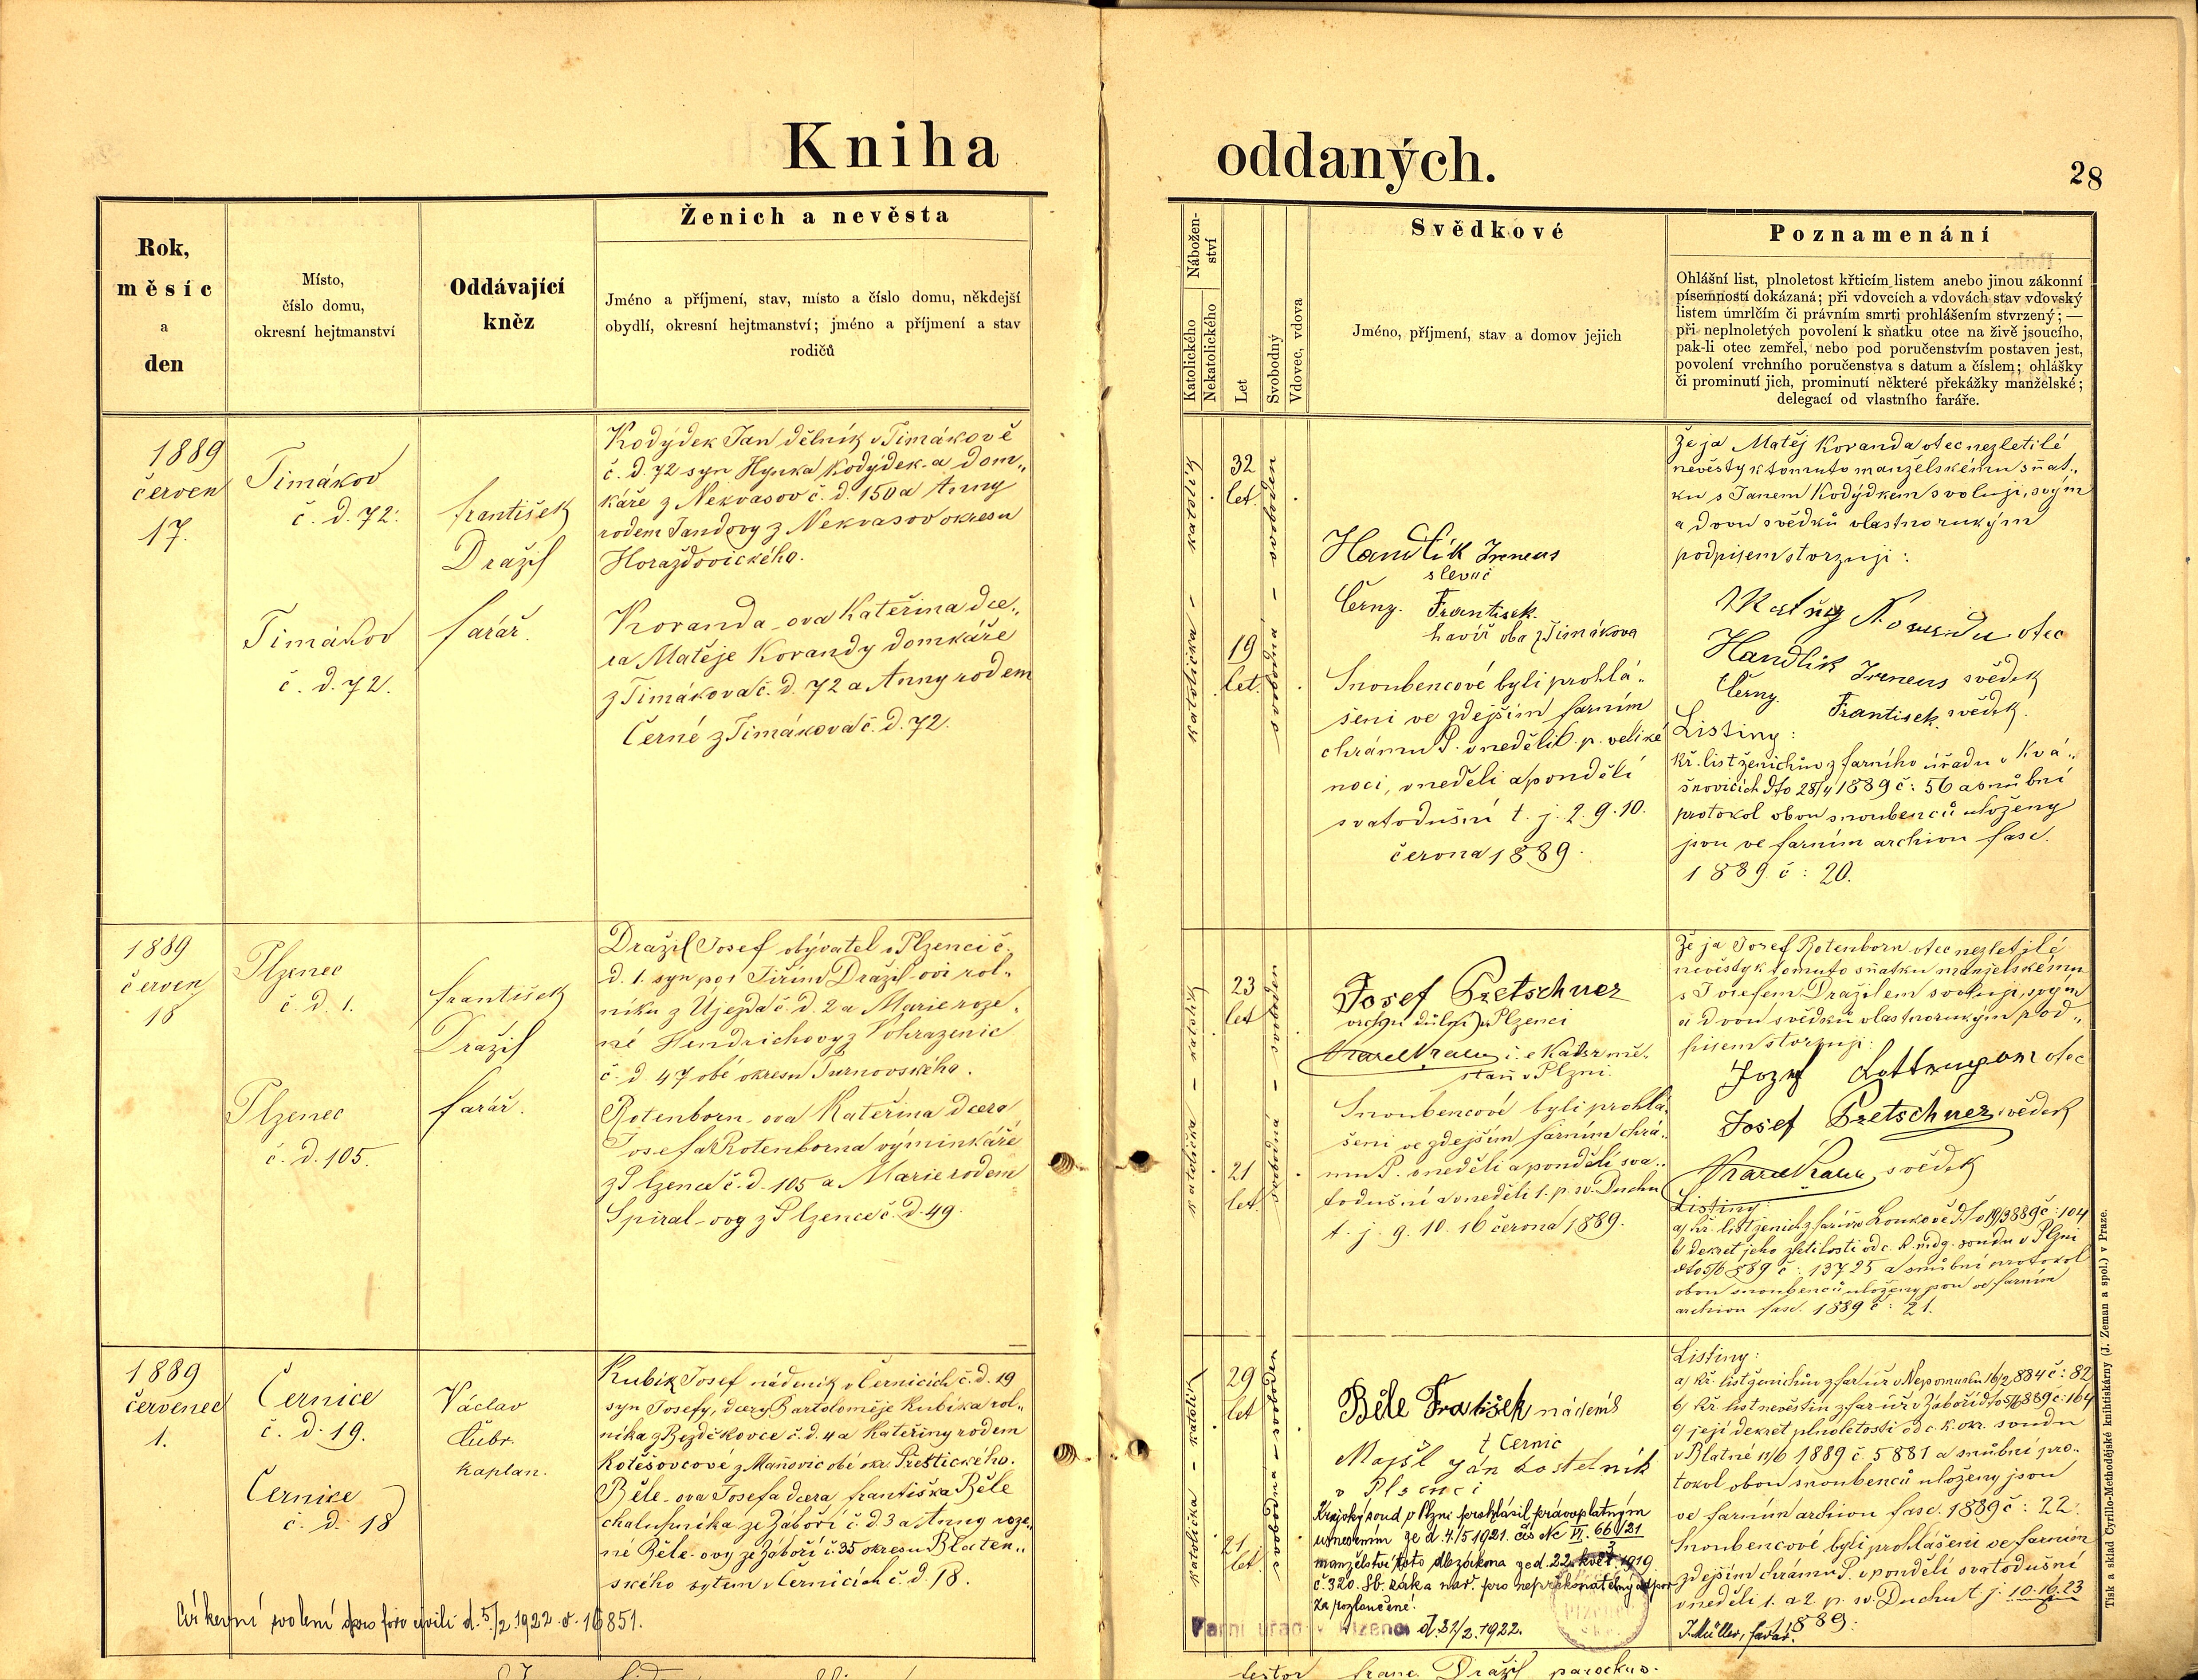 Kniha oddaných.
28
Rok,
měsíc
a
den
Místo,
číslo domu,
okresní hejtmanství
Oddávající
kněz
Ženich a nevěsta
Jméno a příjmení, stav, místo a číslo domu, někdejší
obydlí, okresní hejtmanství; jméno a příjmení a stav
rodičů
Nábožen-
ství
Katolického
Nekatolického
Let
Svobodný
Vdovec, vdova
Svědkové
Jméno, příjmení, stav a domov jejich
Poznamenání
Ohlášní list, plnoletost křticím listem anebo jinou zákonní
písemností dokázaná; při vdovcích a vdovách stav vdovský
listem úmrlčím či právním smrti prohlášením stvrzený; —
při neplnoletých povolení k sňatku otce na živě jsoucího,
pak-li otec zemřel, nebo pod poručenstvím postaven jest,
povolení vrchního poručenstva s datum a číslem; ohlášky
či prominutí jich, prominutí některé překážky manželské;
delegací od vlastního faráře.
1889
červen
17.
Timákov
č. d. 72.
Timákov
č. d. 72.
František
Dražil
farář.
Kodýdek Jan dělník v Timákově
č. d. 72 syn Hynka Kodýdek-a dom„
káře z Nekvasov č. d. 150 a Anny
rodem Jandovy z Nekvasov okresu
Horažďovického.
Koranda-ova Kateřina dce„
ra Matěje Korandy domkáře
z Timákova č. d. 72 a Anny rodem
Černé z Timákova č. d. 72.
katolík
katolička
32
let
19
let.
svoboden
svobodná
Handlík Ireneus
slevač
Černy. František.
havíř oba z Timákova
Snoubencové byli prohlá„
šeni ve zdejším farním
chrámu P. v neděli 6. p. veliké
noci, v neděli a pondělí
svatodušní t. j. 2. 9. 10.
června 1889.
Že já Matěj Koranda otec nezletilé
nevěsty k tomuto manželskému sňat„
ku s Janem Kodýdkem svoluji, svým
a dvou svědků vlastnorukým
podpisem stvrzuji:
otec
Handlik Ireneus svědek
Černy František svědek.
Listiny:
kř. list ženichův z farního úřadu v Kvá„
šňovicích dto 28/4 1889 č: 56 a snubní
protokol obou snoubenců uloženy
jsou ve farním archivu fasc.
1889 č: 20.
1889
červen
18
Plzenec
č. d. 1.
Plzenec
č. d. 105.
František
Dražil
farář.
Dražil Josef obývatel v Plzenci č.
d. 1. syn po† Jiřím Dražil-ovi rol„
níku z Újezda č. d. 2 a Marie roze„
né Hendrichovy z Vohrazenic
č. d. 47 obé okresu Turnovského.
Rotenborn-ova Kateřina dcera
Josefa Rotenborna výminkáře
z Plzence č. d. 105 a Marie rodem
Spiral-ovy z Plzence č. d. 49.
katolík
katolička
23
let
21
let.
svoboden
svobodná
Josef Pretschner
vrchní důlní v Plzenci
stan v Plzni.
Snoubencové byli prohlá„
šeni ve zdejším farním chrá„
mu P. v neděli a pondělí sva„
todušní a v neděli 1. p. sv. Duchu
t. j. 9. 10. 16 června 1889.
Že já Josef Rotenborn otec nezletilé
nevěsty k tomuto sňatku manželskému
s Josefem Dražilem svoluji, svým
a dvou svědků vlastnorukým pod„
pisem stvrzuji:
otec
Josef Pretschner svědek
svědek
Listiny:
a) kř. list ženich. z far. úř. v Loukově dto 19/3 889 č: 104
b) dekret jeho zletilosti od c. k. m. d. g. soudu v Plzni
dto 5/6 889 č: 13725 a snubní protokol
obou snoubenců uloženy jsou ve farním
archivu fasc. 1889 č: 21.
1889
červenec
1.
Černice
č. d. 19.
Černice
č. d. 18
Václav
Čubr.
kaplan.
Kubík Josef nádeník v Černicích č. d. 19
syn Josefy, dcery Bartoloměje Kubíka rol„
níka z Bezděkovce č. d. 4 a Kateřiny rodem
Kotěšovcové z Maňovic obé okr. Přeštického.
Běle-ova Josefa dcera Františka Běle
chalupníka ze Záboří č. d. 3 a Anny roze„
né Běle-ovy ze Záboří č. 35 okresu Blaten„
ského bytem v Černicích č. d. 18.
Církevní svolení pro foro civili d. 5/2. 1922 č. 16851.
katolík
katolička
29
let
21
let.
svoboden
svobodná
Běle František nádeník
z Černic
Majšl Ján kostelník
v Plzenci
Krajský soud v Plzni prohlásil právoplatným
usnesením ze d. 4./5 1921. čís Nc VI. 663/21
manželství toto dle zákona ze d. 22. květ. 1919
č. 320. Sb. zák. a nař. pro nepřekonatelný odpor
za rozloučené.
Farní úřad v Plzenci d. 21/2. 1922.
Listiny:
a) kř. list ženichův z far úř. v Nepomuku 16/2 884 č: 82
b) kř. list nevěstin z far úř. v Záboří dto 5/6 889 č: 164
c) její dekret plnoletosti od c. k. okr. soudu
v Blatné 11/6 1889 č. 5881 a snubní pro„
tokol obou snoubenců uloženy jsou
ve farním archivu fasc. 1889 č: 22.
Snoubencové byli prohlášeni ve farním
zdejším chrámu P. v pondělí svatodušní
v neděli 1. a 2. p. sv. Duchu t. j. 10. 16. 23
1889.
J. Müller, farář.
testor franc. Dražil parochus.
Tisk a sklad Cyrillo-Methodějské knihtiskárny (J. Zeman a spol.) v Praze.